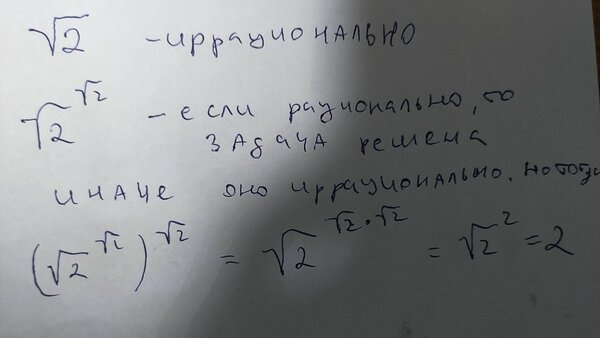 √2 - иррационально
√2^√2 - если рационально, то
задача решена
иначе оно иррационально. но тогда
(√2^√2)^√2 = √2^√2·√2 = √2^2 = 2